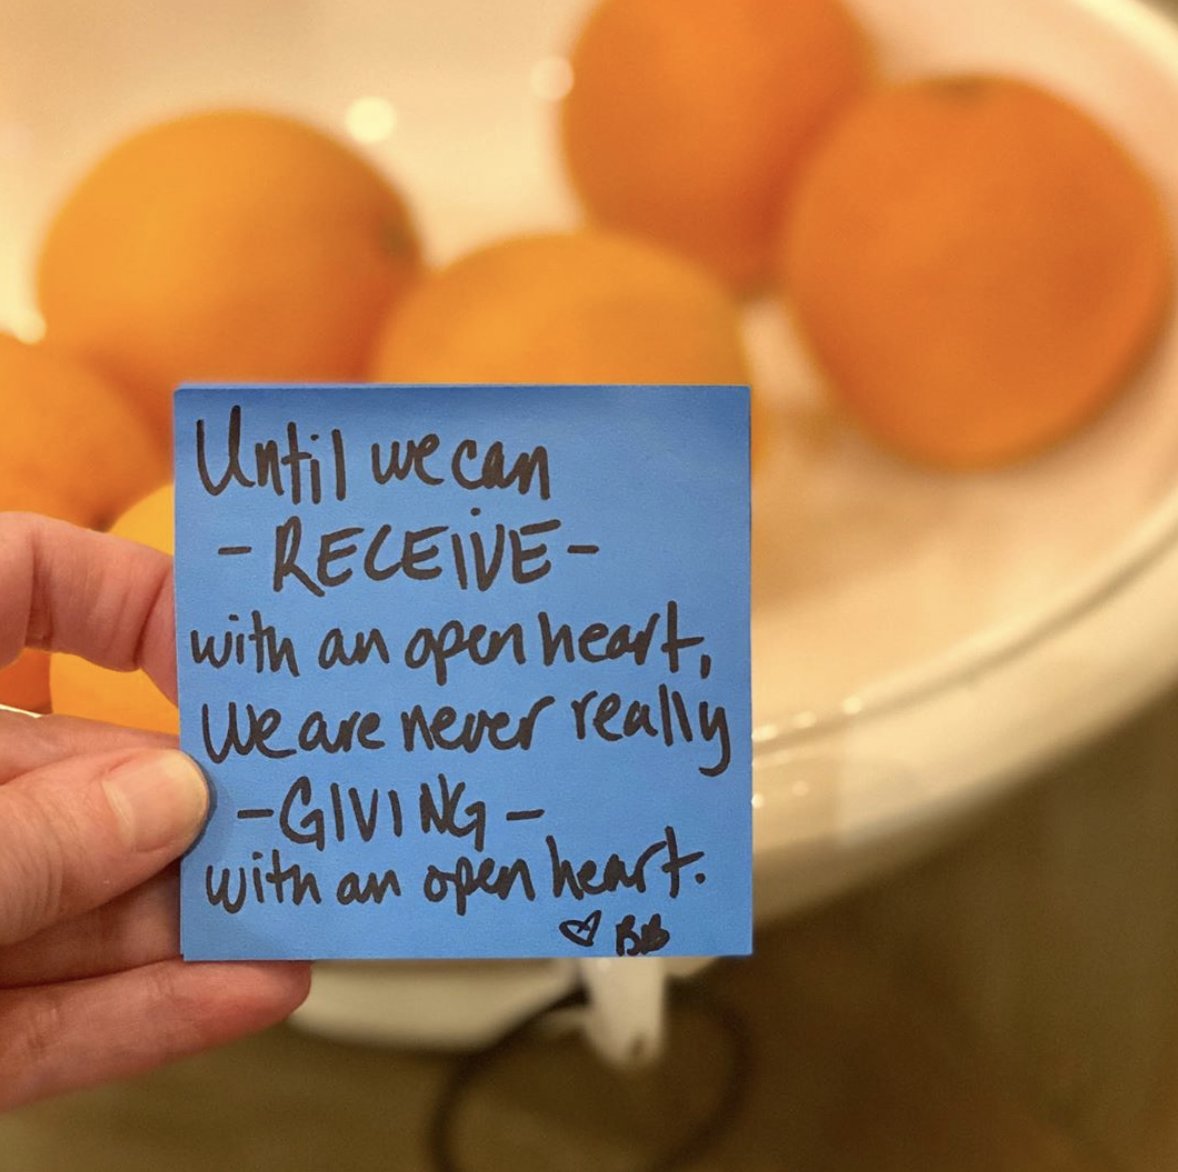 Until we can
-RECEIVE-
with an open heart,
We are never really
-GIVING-
with an open heart.
♡ BB